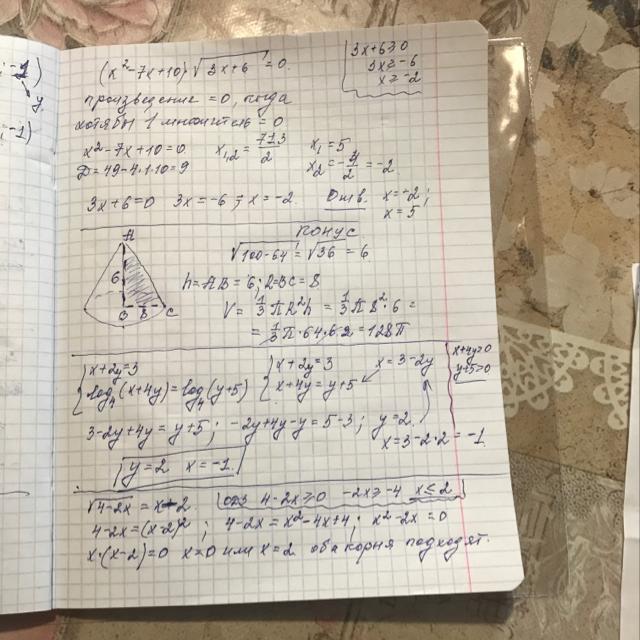 (x²-7x+10)√3x+6 = 0.
3x+6≥0
3x≥-6
x≥-2
произведение =0, когда
хотя бы 1 множитель =0
x²-7x+10=0
x₁,₂ = 7±3/2
x₁=5
x₂=-4/2=-2
D=49-4·1·10=9
3x+6=0 3x=-6; x=-2.
Отв. x=-2;
x=5;
конус
√100-64 = √36 = 6
A
6
B
8
C
h=AB=6; R=BC=8
V = 1/3πR²h = 1/3π8²·6 =
= 1/3π·64·6·2=128π
x+2y=3
log₄(x+4y)=log₄(y+5)
x+2y=3
x+4y=y+5
x=3-2y
x+4y>0
y+5>0
3-2y+4y=y+5; -2y+4y-y=5-3; y=2
x=3-2·2=-1
y=2 x=-1
√4-2x = x-2
ОДЗ 4-2x≥0 -2x≥-4 x≤2
4-2x=(x-2)²; 4-2x=x²-4x+4; x²-2x=0
x·(x-2)=0 x=0 или x=2 оба корня подходят.